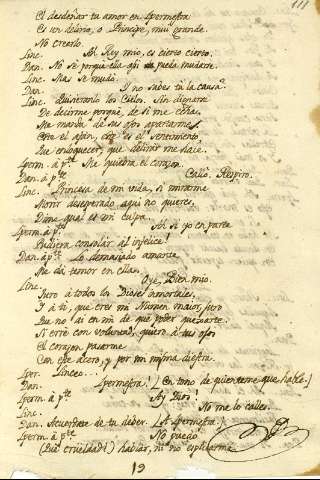 111
El desdeñar tu amor en Ipermestra
Es un delirio, o Principe, mui grande.
No creerlo.
Linc. Ah Rey mio, es cierto cierto.
Dan. No sé porque ella assi pueda mudarse.
Linc. Mas se mudó.
Dan. Y no sabes tú la causa?
Linc. Quisieranlo los Cielos. Sin dignarse
De decirme porqué, de sí me echa,
Me manda de sus ojos apartarme.
Este el afán, este es el sentimiento,
Que enloquecer, que delirar me hace.
Iperm. à pte. Me quiebra el corazon.
Dan. à pte. Calló. Respiro.
Linc. Princesa de mi vida, si mirarme
Morir desesperado aqui no quieres,
Dime qual es mi culpa.
Iperm. à pte. Ah si yo en parte
Pudiera consolar al infelice!
Dan. à pte. Lo demasiado amante
Me da temor en ella.
Linc. Oye, Bien mio.
Juro à todos los Dioses inmortales,
Y à ti, que eres mi Numen maior, juro
Que no ai en mi de que poder quexarte.
Si erré con voluntad, quiero à tus ojos
El corazon pasarme
Con este acero, y por mi misma diestra.
Iper. Linceo...
Dan. Ipermestra. (En tono de quien teme que hable.)
Iperm. à pte. Ay Dios!
Linc. No me lo calles.
Dan. Acuerdate de tu deber. (A Ipermestra.)
Iperm. à pte. No puedo
(Qué crüeldad!) hablar, ni no esplicarme
19